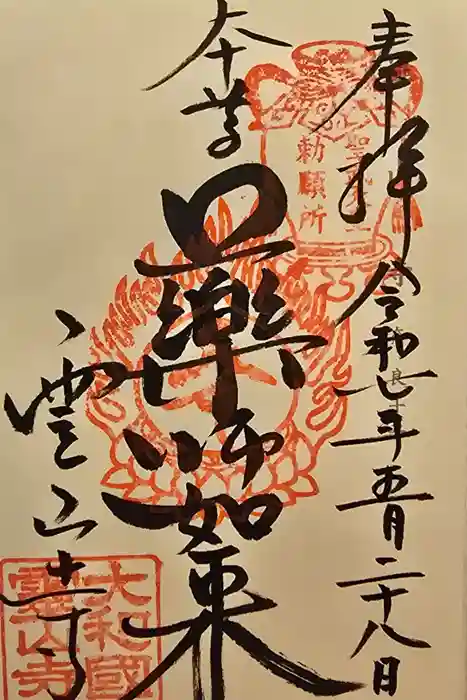 奉拝
令和七年五月二十八日
本尊
薬師如来
霊山寺
勅願所
大和國
霊山寺